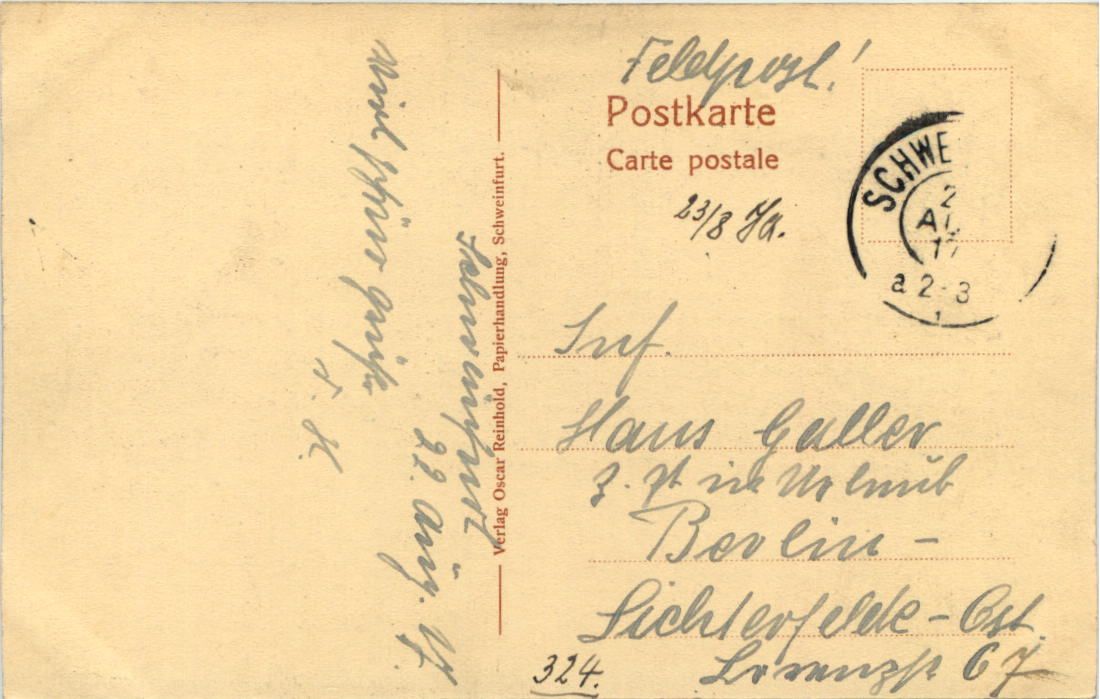 Feldpost!
Postkarte
Carte postale
23/8
SCHWE
2
a 2-3
Inf.
Hans Galler
z. Zt. in Urlaub
Berlin-
Lichterfelde-Ost.
Lorenzstr. 67
324.
Verlag Oscar Reinhold, Papierhandlung, Schweinfurt.
Schweinfurt
22. Aug. 17.